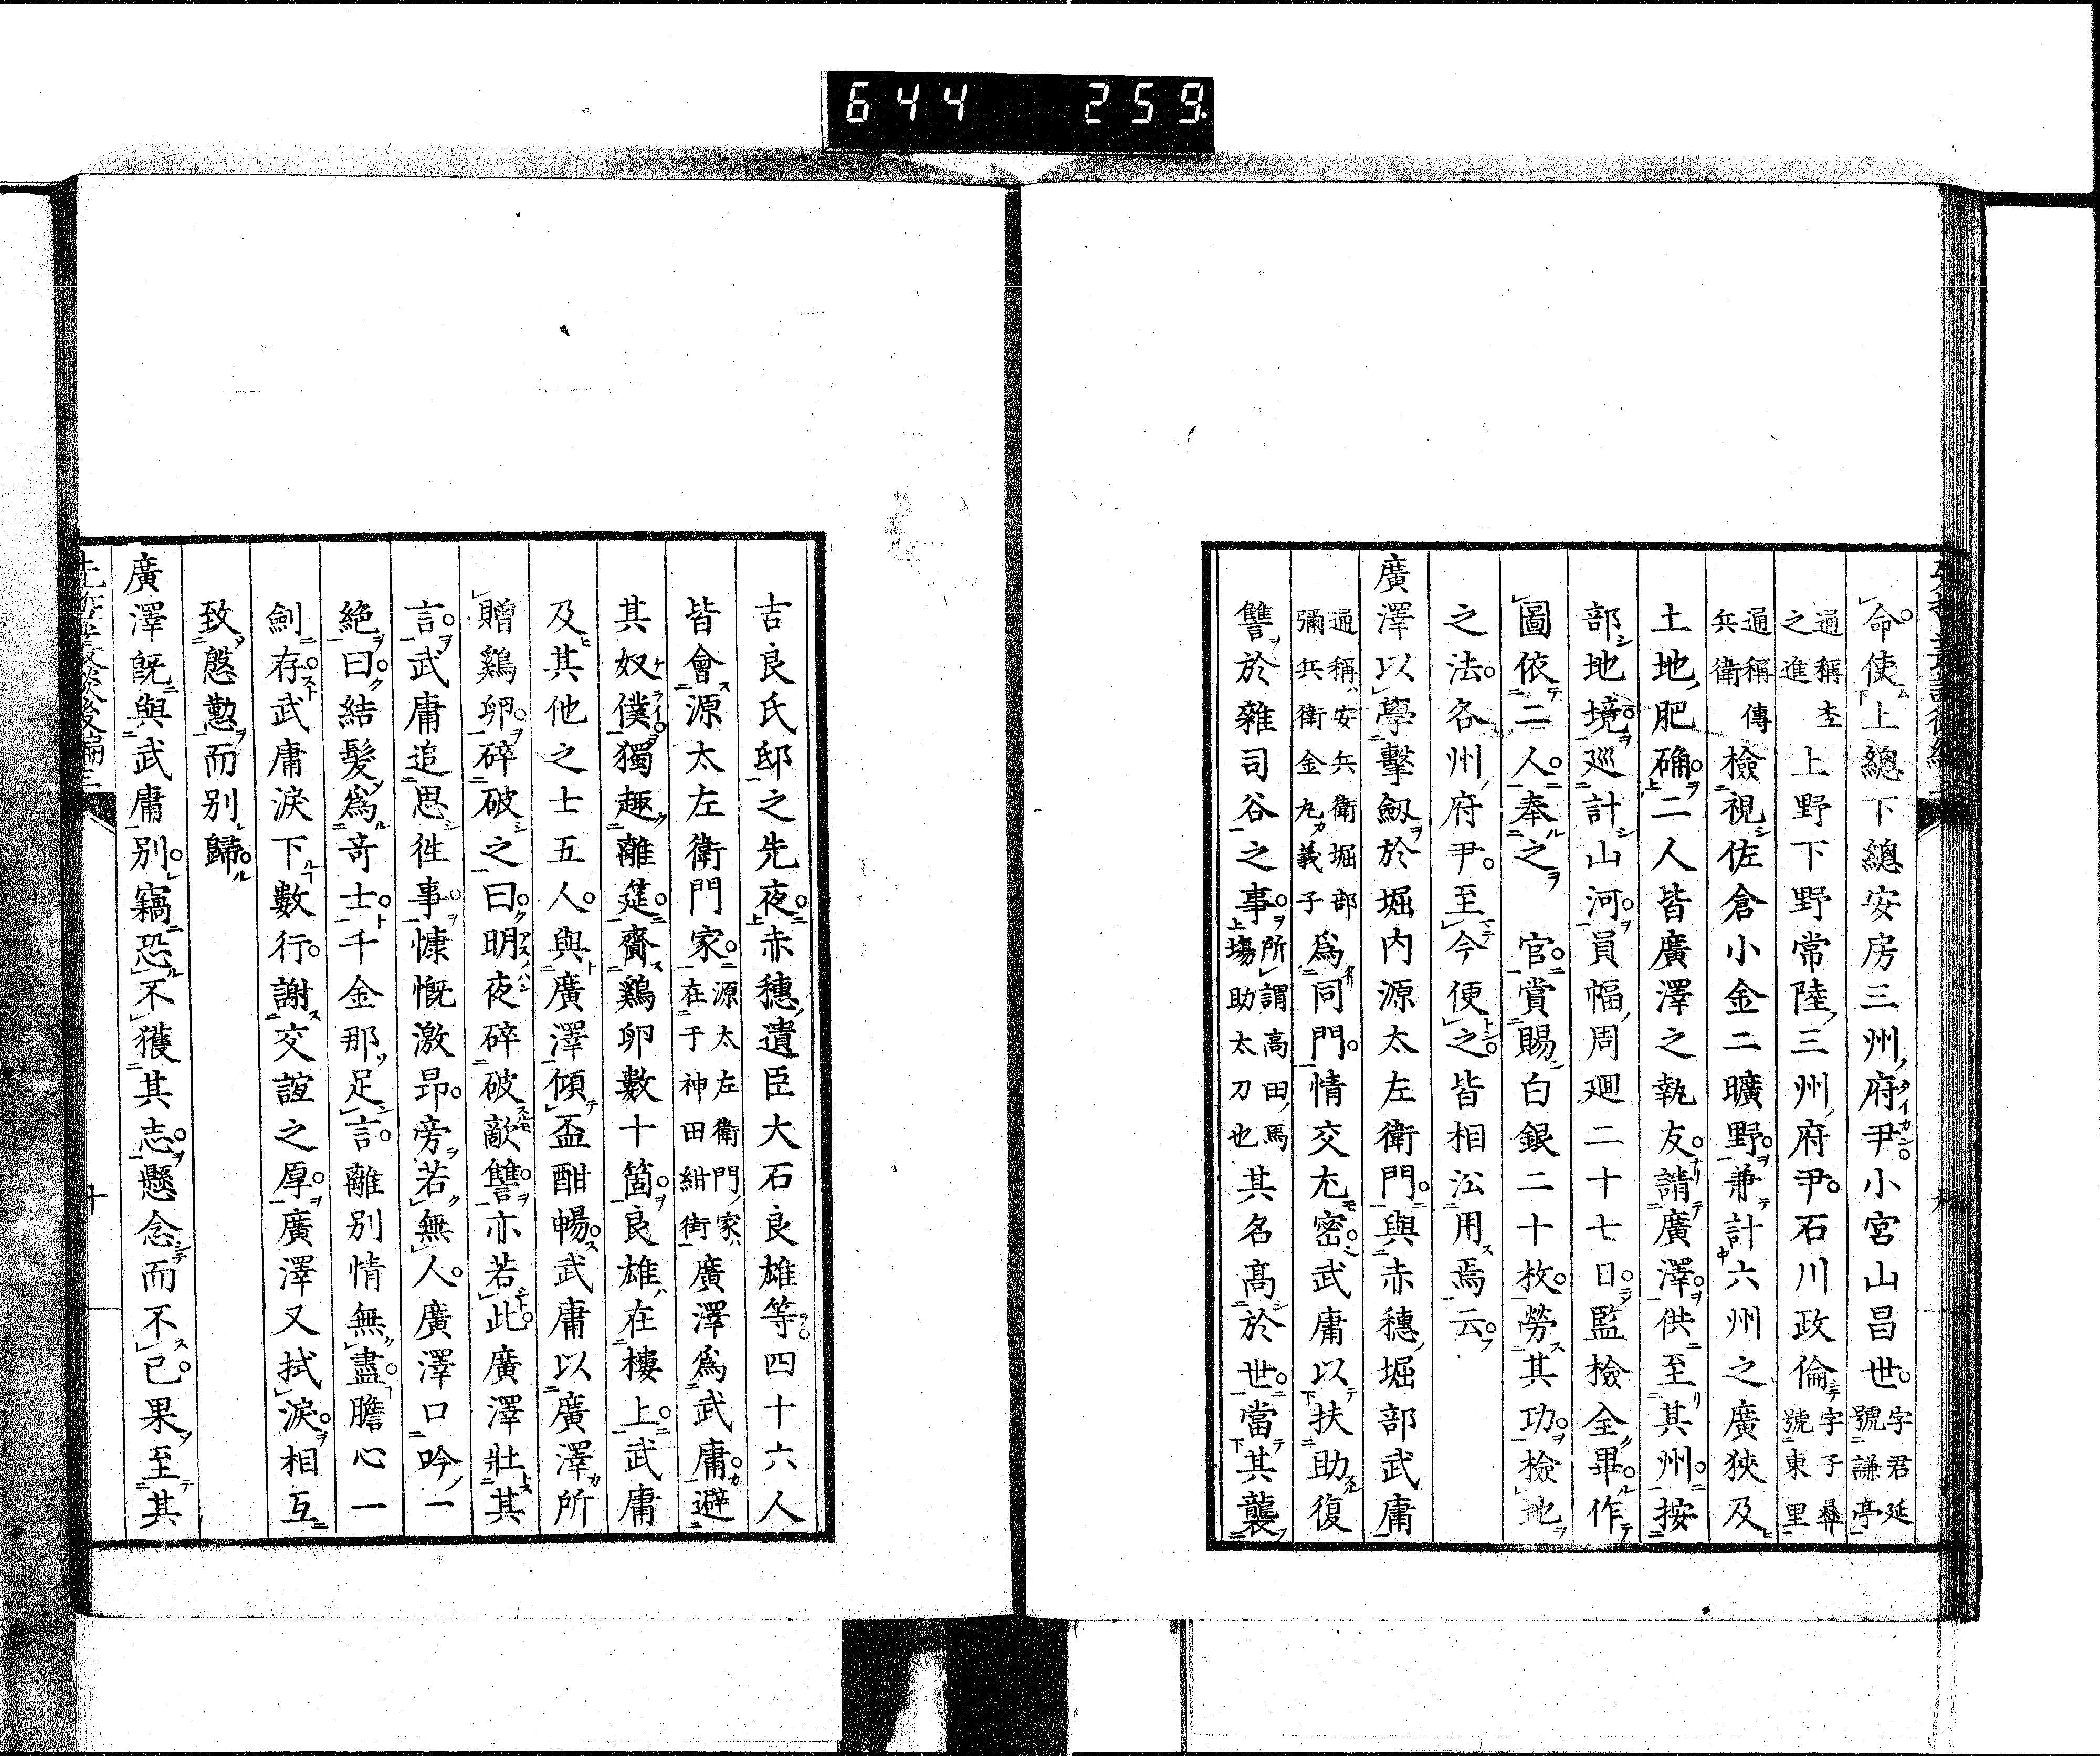 644 259
命使上總下總安房三州府尹小宮山昌世字君延號謙亭
通稱杢之進上野下野常陸三州府尹石川政倫字子彝號東里
通稱傳兵衛檢視佐倉小金二曠野兼計六州之廣狹及
土地肥确二人皆廣澤之執友請廣澤供至其州按
部地境巡計山河員幅周廻二十七日監檢全畢作
圖依二人奉之 官賞賜白銀二十枚勞其功檢地
之法各州府尹至今便之皆相沿用焉云
廣澤以學擊劔於堀内源太左衛門與赤穗堀部武庸
通稱安兵衛堀部彌兵衛金丸義子爲同門情交尤密武庸以扶助復
讐於雜司谷之事所謂高田馬場助太刀也其名高於世當其襲
吉良氏邸之先夜赤穗遺臣大石良雄等四十六人
皆會源太左衛門家源太左衛門家在于神田紺街廣澤爲武庸避
其奴僕獨趣離筵齎鷄卵數十箇良雄在樓上武庸
及其他之士五人與廣澤傾盃酣暢武庸以廣澤所
贈鷄卵碎破之曰明夜碎破敵讐亦若此廣澤壯其
言武庸追思徃事慷慨激昂旁若無人廣澤口吟一
絶曰結髮爲奇士千金那足言離別情無盡膽心一
劍存武庸淚下數行謝交誼之厚廣澤又拭淚相互
致慇懃而別歸
廣澤旣與武庸別竊恐不獲其志懸念而不已果至其
十